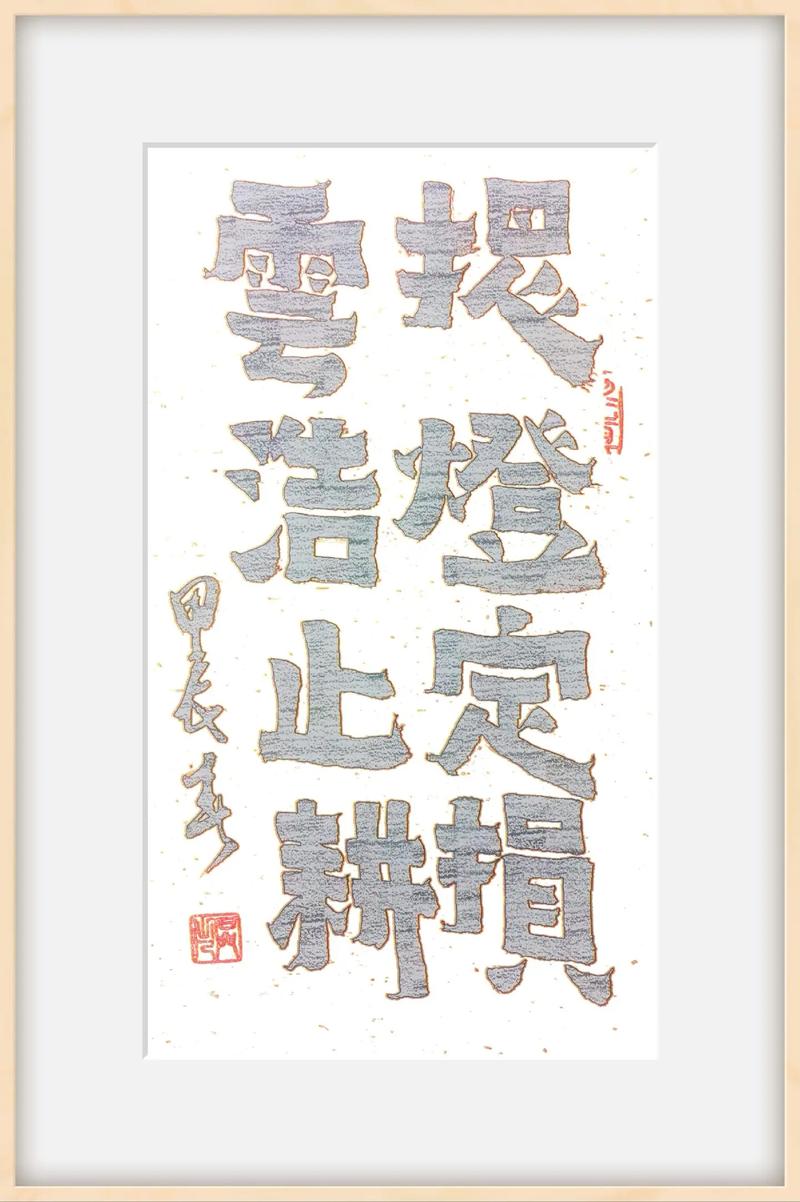 提燈定損
雲浩止耕
甲辰春